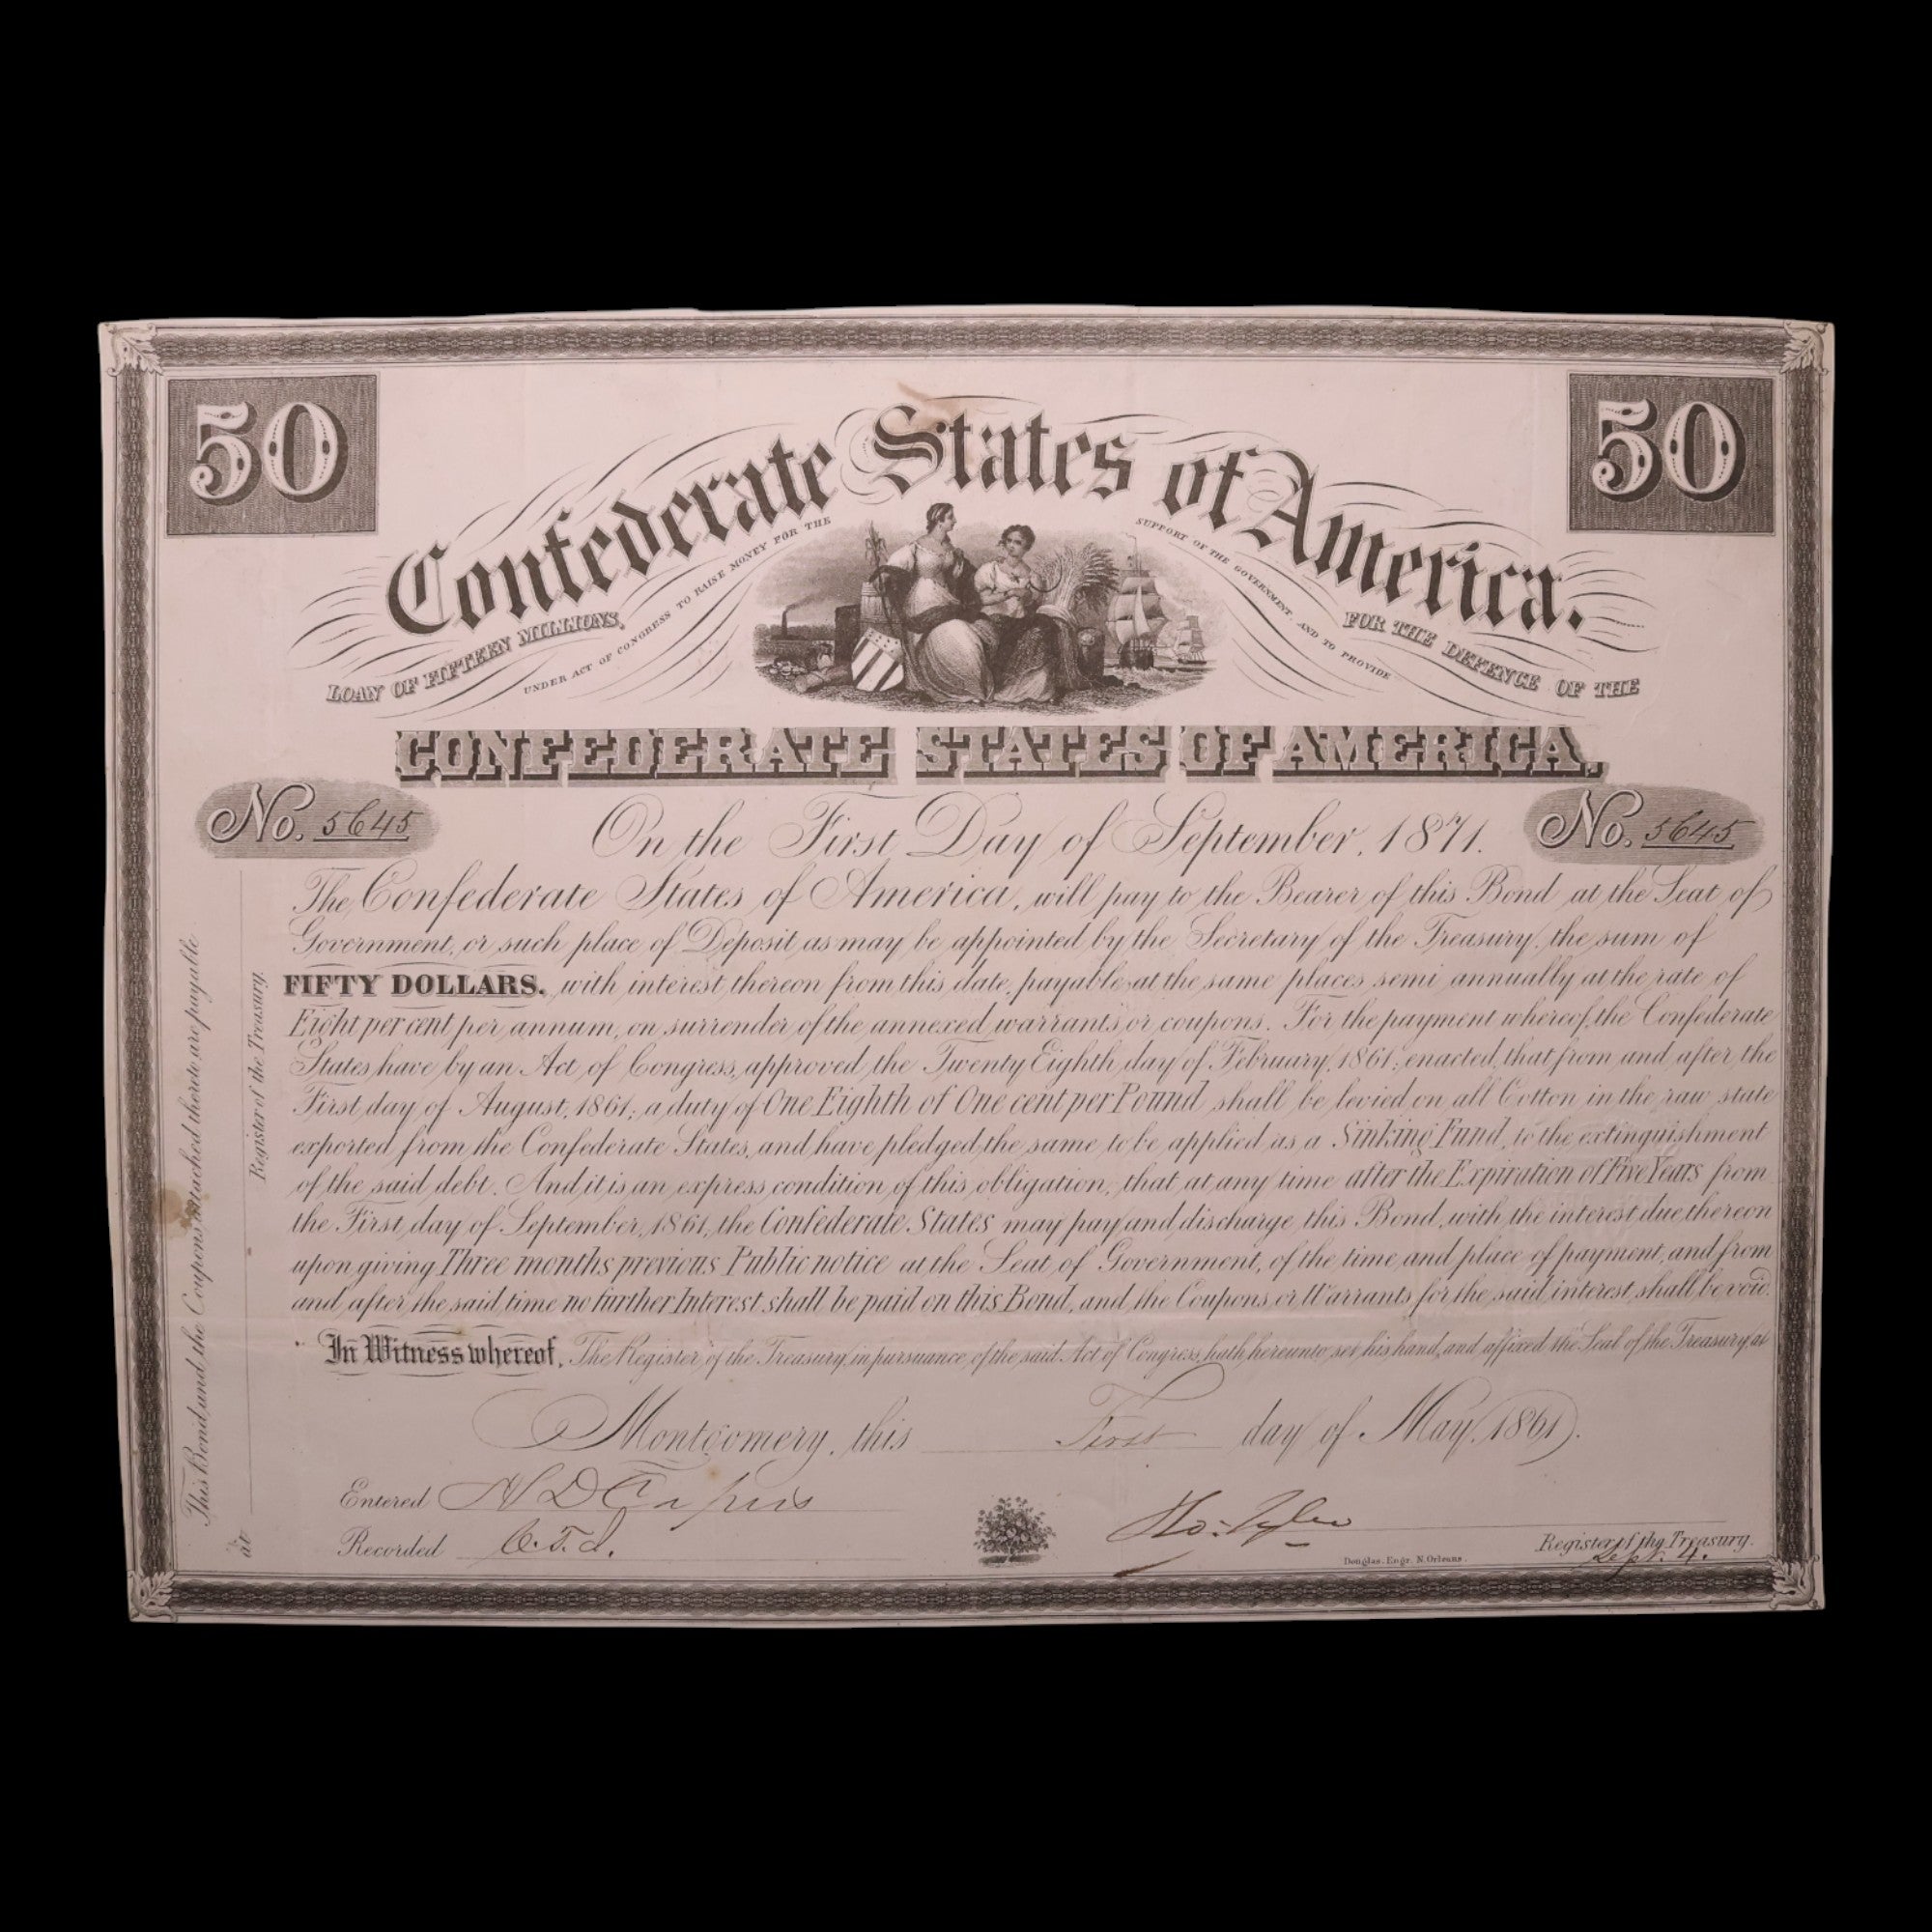 50
50
Confederate States of America.
LOAN OF FIFTEEN MILLIONS,
UNDER ACT OF CONGRESS TO RAISE MONEY FOR THE
SUPPORT OF THE GOVERNMENT AND TO PROVIDE
FOR THE DEFENCE OF THE
CONFEDERATE STATES OF AMERICA,
No. 5645
No. 5645
On the First Day of September, 1871.
The Confederate States of America, will pay to the Bearer of this Bond at the Seat of
Government, or such place of Deposit as may be appointed by the Secretary of the Treasury, the sum of
FIFTY DOLLARS. with interest thereon from this date, payable at the same places semi annually at the rate of
Eight per cent per annum, on surrender of the annexed warrants or coupons. For the payment whereof, the Confederate
States have by an Act of Congress, approved the Twenty Eighth day of February, 1861; enacted, that from and after the
First day of August, 1861; a duty of One Eighth of One cent per Pound shall be levied on all Cotton in the raw state
exported from the Confederate States, and have pledged the same to be applied as a Sinking Fund, to the extinguishment
of the said debt. And it is an express condition of this obligation, that at any time after the Expiration of Five Years from
the First day of September, 1861, the Confederate States may pay and discharge this Bond with the interest due thereon
upon giving Three months previous Public notice at the Seat of Government, of the time and place of payment, and from
and after the said time no further Interest shall be paid on this Bond, and the Coupons or Warrants for the said interest shall be void.
In Witness whereof, The Register of the Treasury, in pursuance of the said Act of Congress, hath hereunto set his hand, and affixed the Seal of the Treasury at
Montgomery, this First day of May, 1861.
Entered
Recorded C.T.J.
Register of the Treasury.
Douglas. Engr. N. Orleans.
Sept. 4.
This Bond, and the Coupons attached thereto, are payable
at
Register of the Treasury.